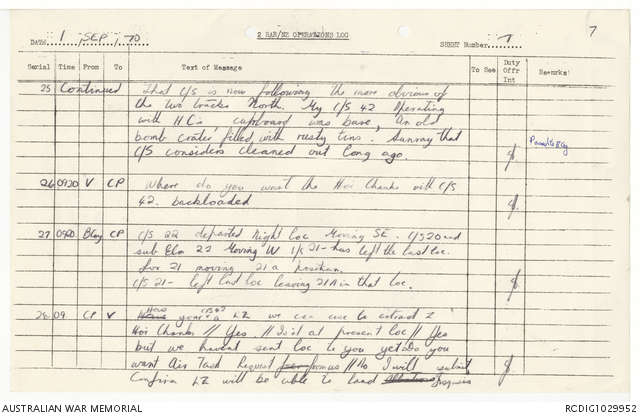 7
DATE 1 SEP 70 2 RAR/NZ OPERATIONS LOG SHEET Number 7
Serial Time From To Text of Message To See Duty Offr Int Remarks
25 Continued That C/S is now following the more obvious of
the two tracks North. My C/S 42 Operating
with HC's cupboard was bare, An old
bomb crater filled with rusty tins. Sunray that
C/S considers cleaned out long ago.
26 0920 V CP Where do you want the Hoi Chanh with C/S
42. backloaded
27 0920 BCoy CP C/S 22 departed Night Loc Moving SE. C/S 20 and
sub Elm 22 Moving W C/S 21- has left the last loc.
for 21 moving 21A position.
C/S 21- left last loc leaving 21A in that loc.
28 09 CP V Have your C/S 42 a LZ we can use to extract 2
Hoi Chanhs // Yes // Is it at present loc // Yes
but we havent sent loc to you yet. Do you
want Air Task Request // No I will submit
Confirm LZ will be able to land
AUSTRALIAN WAR MEMORIAL RCDIG1029952